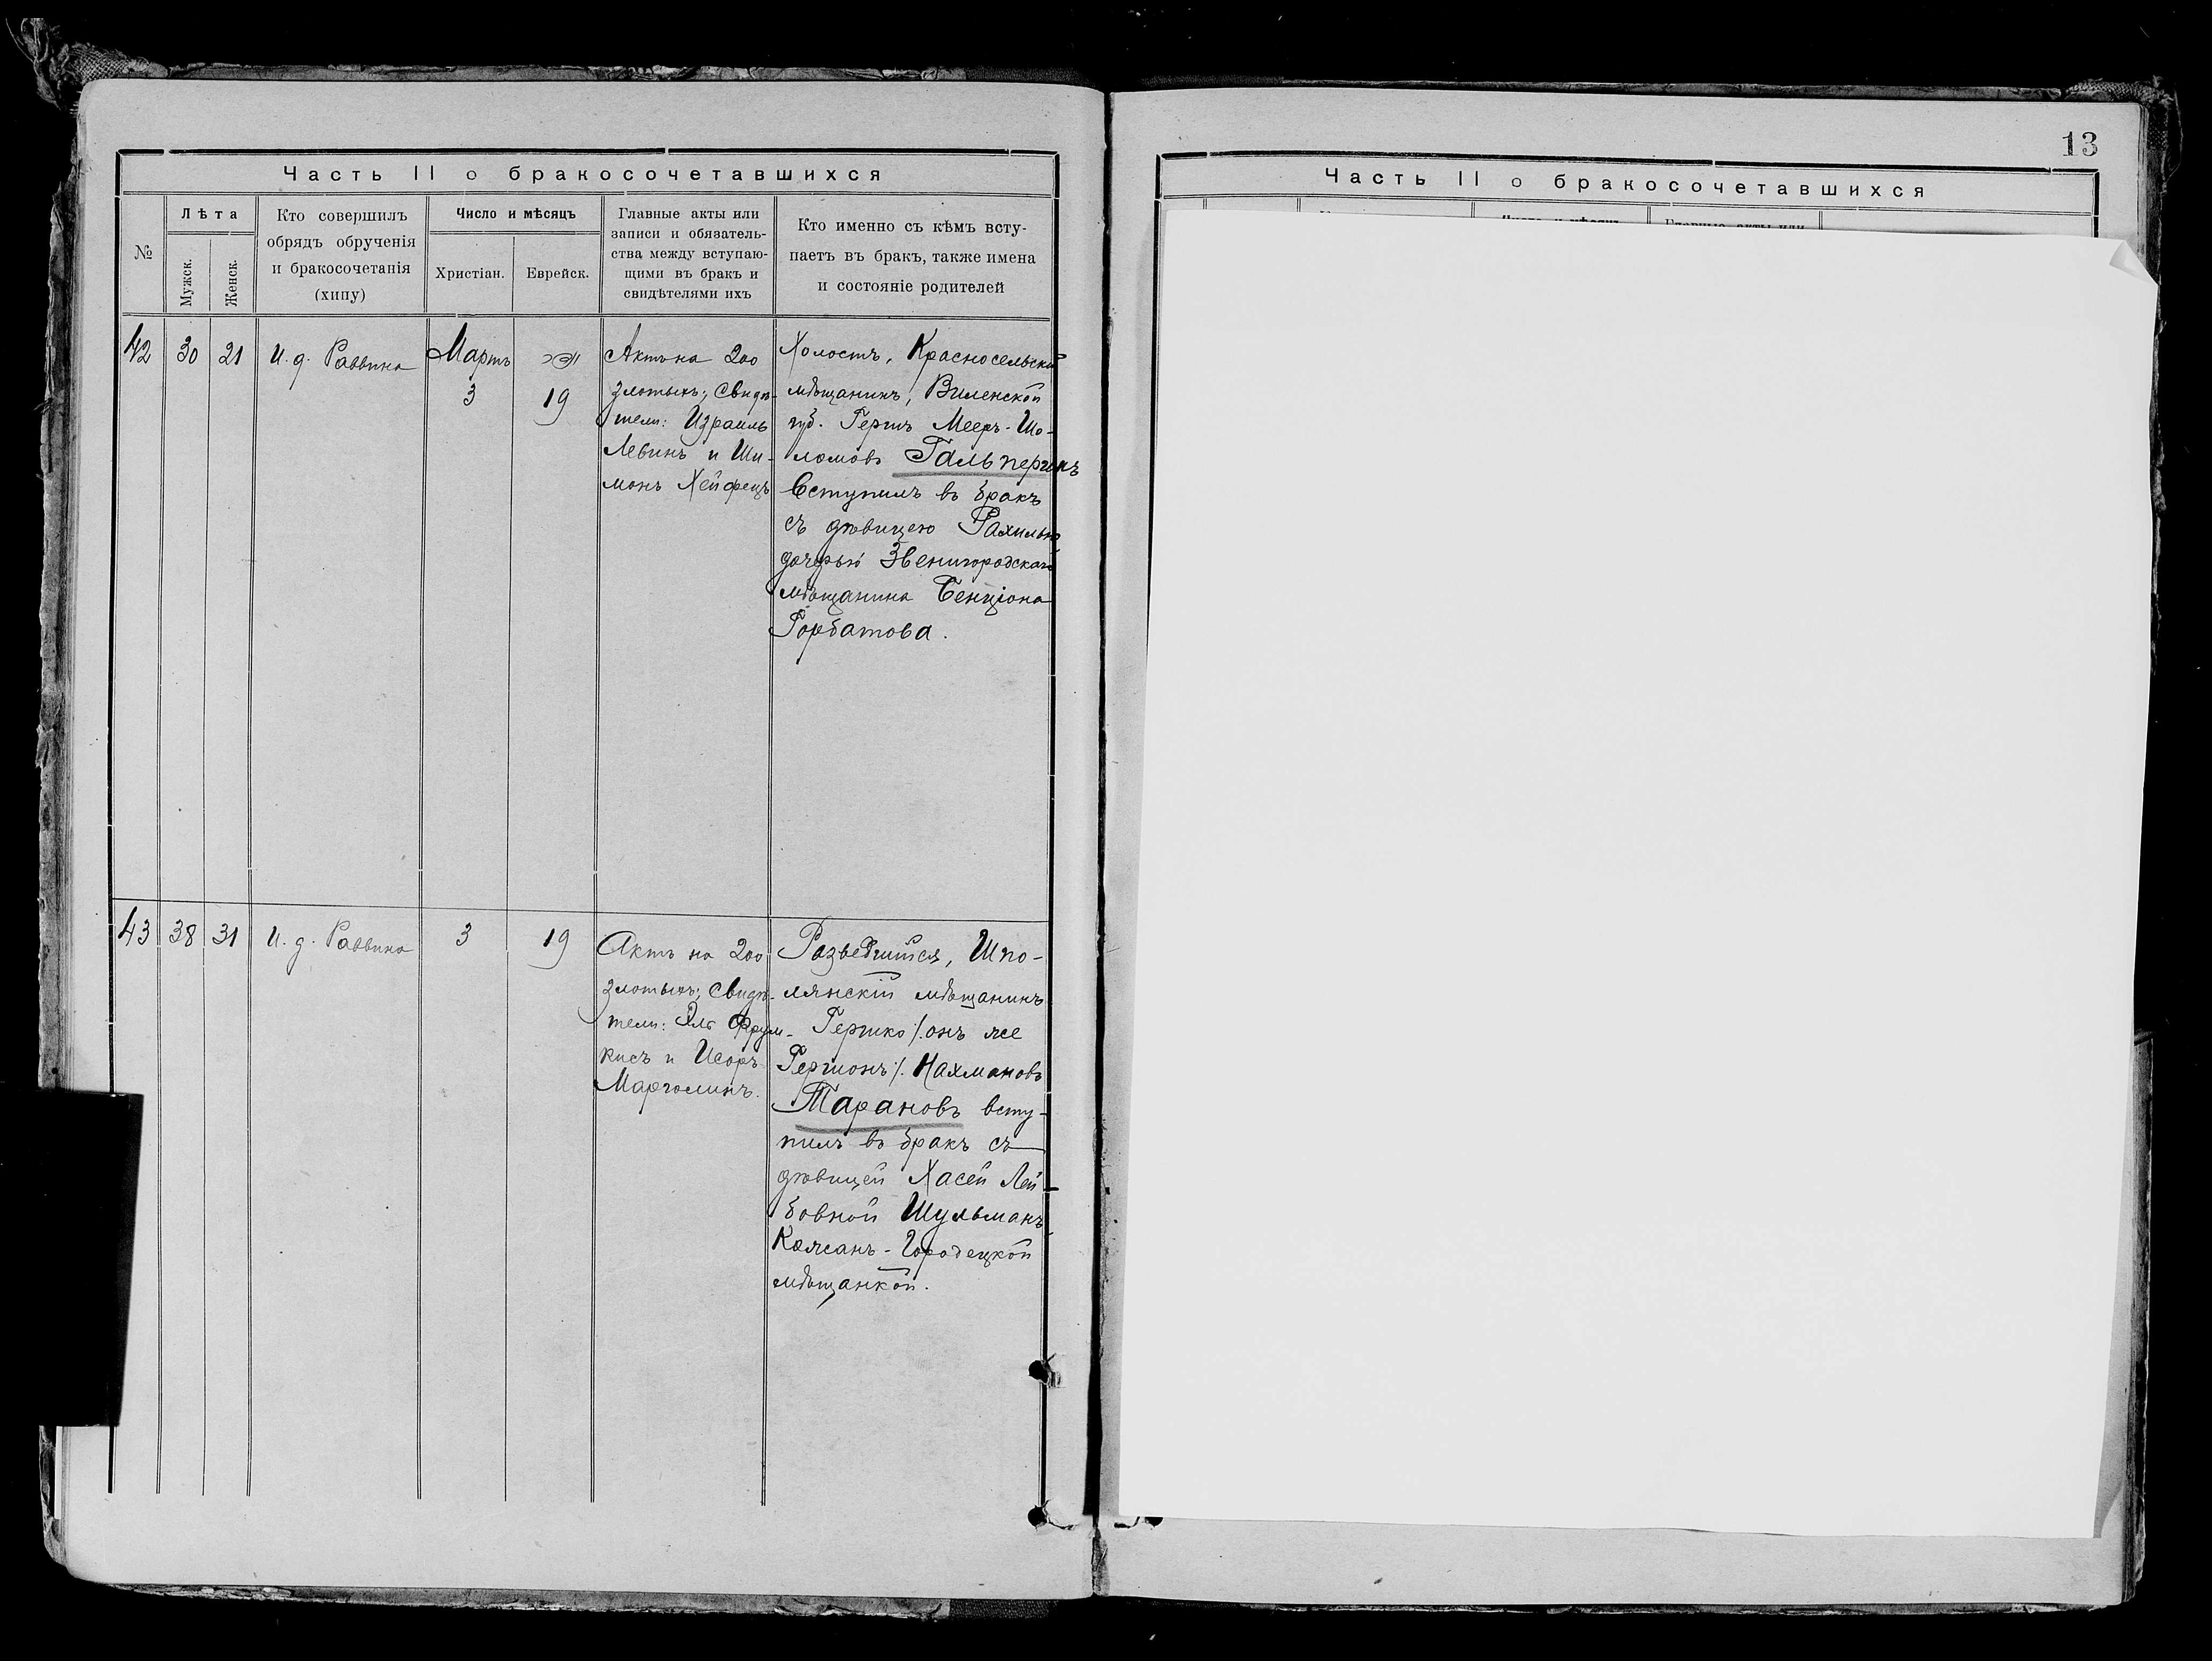 13
Часть II о бракосочетавшихся
№
Лѣта
Мужск.
Женск.
Кто совершилъ
обрядъ обрученія
и бракосочетанія
(хипу)
Число и мѣсяцъ
Христіан.
Еврейск.
Главные акты или
записи и обязатель-
ства между вступаю-
щими въ бракъ и
свидѣтелями ихъ
Кто именно съ кѣмъ всту-
паетъ въ бракъ, также имена
и состояніе родителей
42
30
21
И. д. Раввина
Мартъ
3
19
Актъ на 200
злотыхъ; свидѣ-
тели: Израиль
Левинъ и Ши-
монъ Хейфецъ
Холостъ, Красносельскій
мѣщанинъ, Виленской
губ. Гершъ Мееръ-Шо-
ломовъ Гальперинъ
вступилъ въ бракъ
съ дѣвицею Рахилью
дочерью Звенигородскаго
мѣщанина Бенціона
Горбатова.
43
38
31
И. д. Раввина
3
19
Актъ на 200
злотыхъ; свидѣ-
тели: Эль Фрум-
кисъ и Исоръ
Марголинъ.
Разведшійся, Шпо-
лянскій мѣщанинъ
Гершко /. онъ же
Гершонъ /. Нахмановъ
Тарановъ всту-
пилъ въ бракъ съ
дѣвицей Хасей Лей-
бовной Шульманъ
Кожанъ-Городецкой
мѣщанкой.
Часть II о бракосочетавшихся